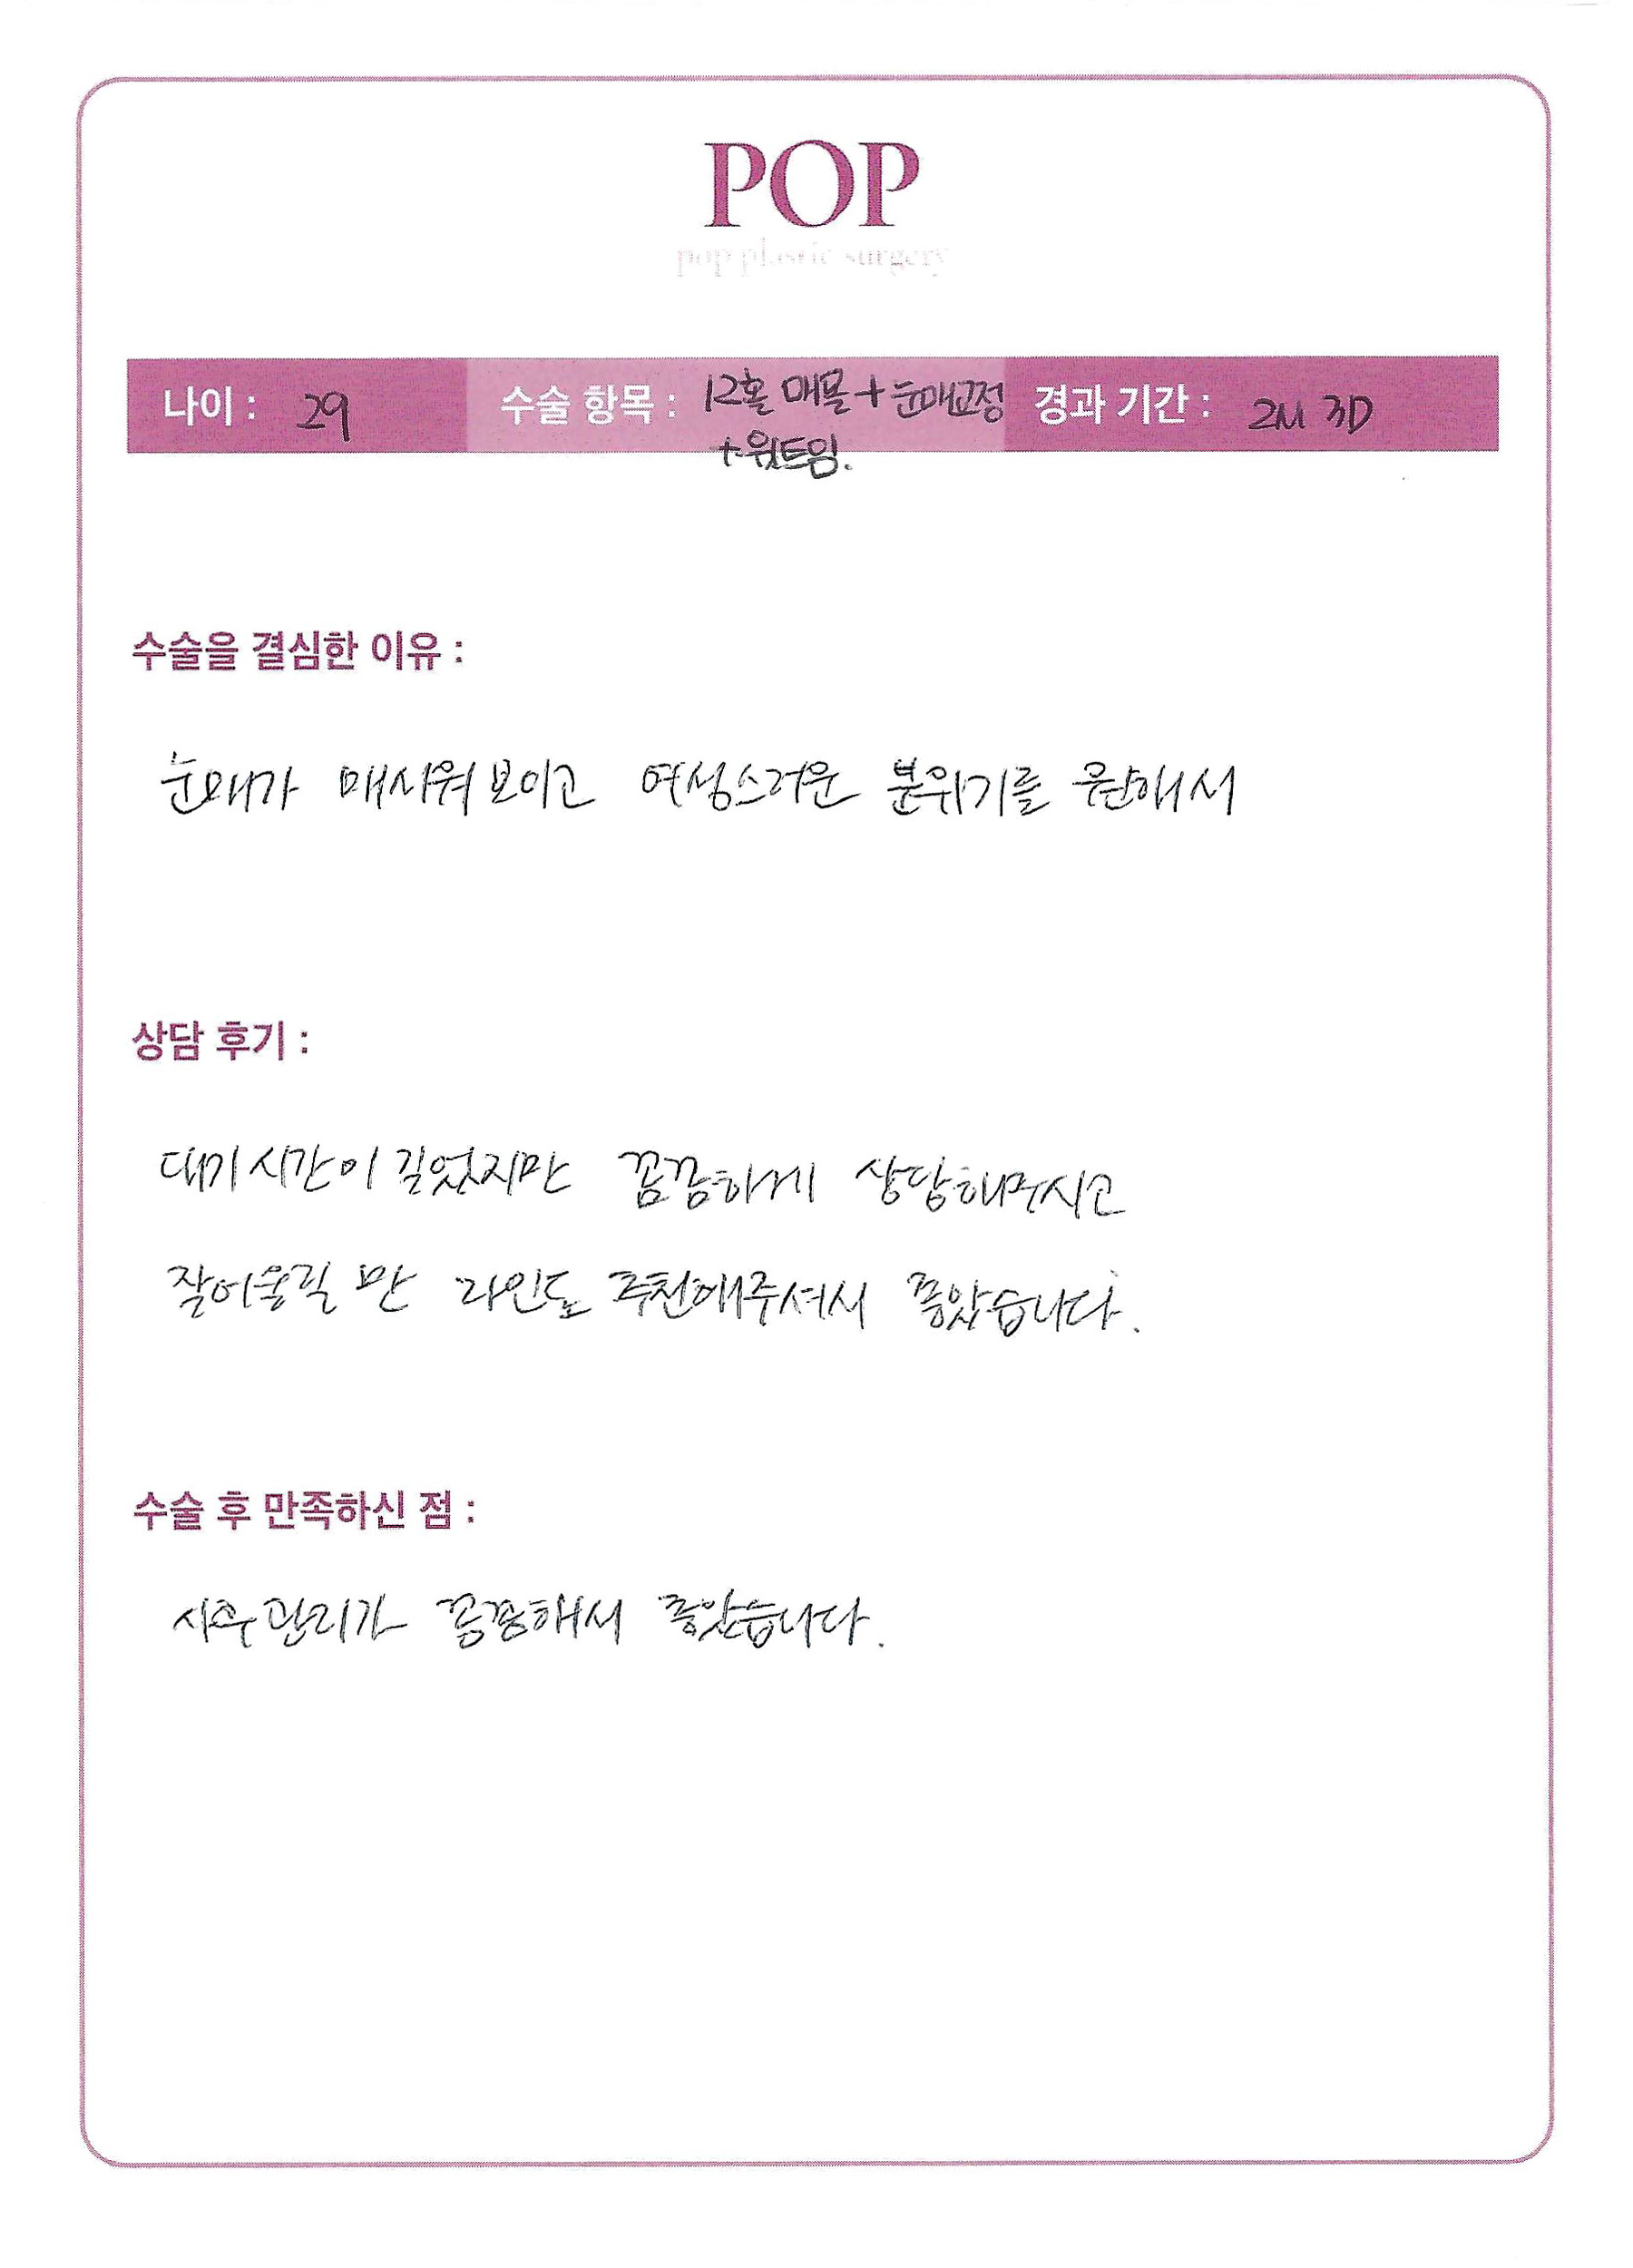 POP
pop plastic surgery
나이 : 29 수술 항목 : 12홀 매몰 + 눈매교정 경과 기간 : 2M 3D
+윗트임.
수술을 결심한 이유 :
눈매가 매서워 보이고 여성스러운 분위기를 원해서
상담 후기 :
대기시간이 길었지만 꼼꼼하게 상담해주시고
잘어울릴 만 라인도 추천해주셔서 좋았습니다.
수술 후 만족하신 점 :
사후관리가 꼼꼼해서 좋았습니다.